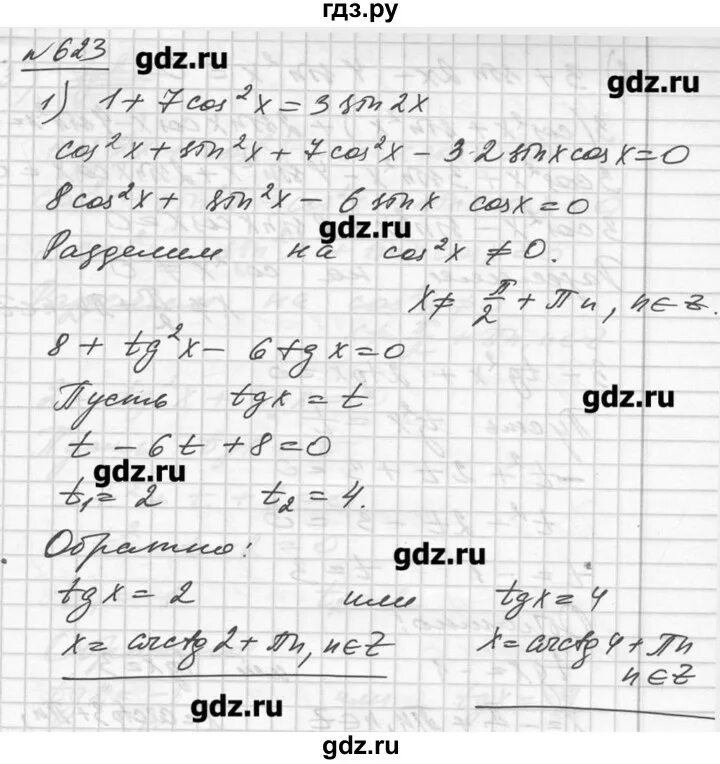 гдз.ру
№623 gdz.ru
1) 1 + 7cos²x = 3 sin 2x gdz.ru
cos²x + sin²x + 7cos²x - 3·2 sinx cosx = 0
8cos²x + sin²x - 6 sinx cosx = 0
gdz.ru
Разделим на cos²x ≠ 0.
x ≠ π/2 + πn, n∈Z.
8 + tg²x - 6tgx = 0
Пусть tgx = t gdz.ru
t - 6t + 8 = 0
gdz.ru
t₁ = 2 t₂ = 4.
Обратно: gdz.ru
tgx = 2 или tgx = 4
x = arctg2 + πn, n∈Z x = arctg4 + πn
n∈Z
gdz.ru
gdz.ru